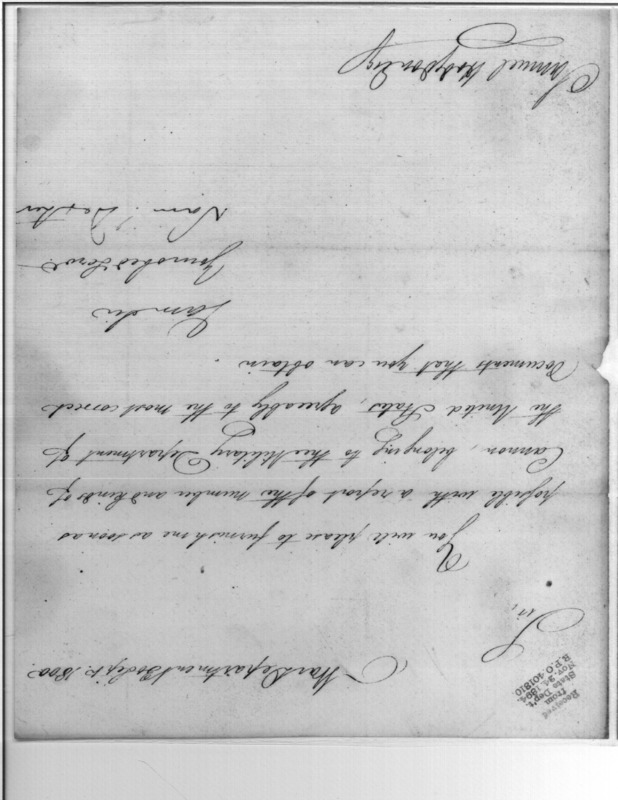 War Department 30 Sept. 1800.
Received
from
State Dep't.
Nov. 24, 1894,
R.P.O. 401810
Sir,
You will please to furnish me as soon as
possible with a report of the number and kinds of
Cannon, belonging to the Military Department of
the United States, agreeably to the most correct
Documents that you can obtain.
I am Sir
Your obed Serv.
Sam. Dexter
Samuel Hodgdon Esqr